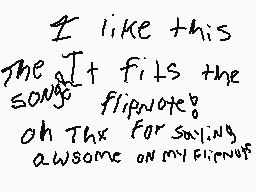 I like this
The It fits the
song flipnote!
oh Thx for saying
awsome on my Flipnote